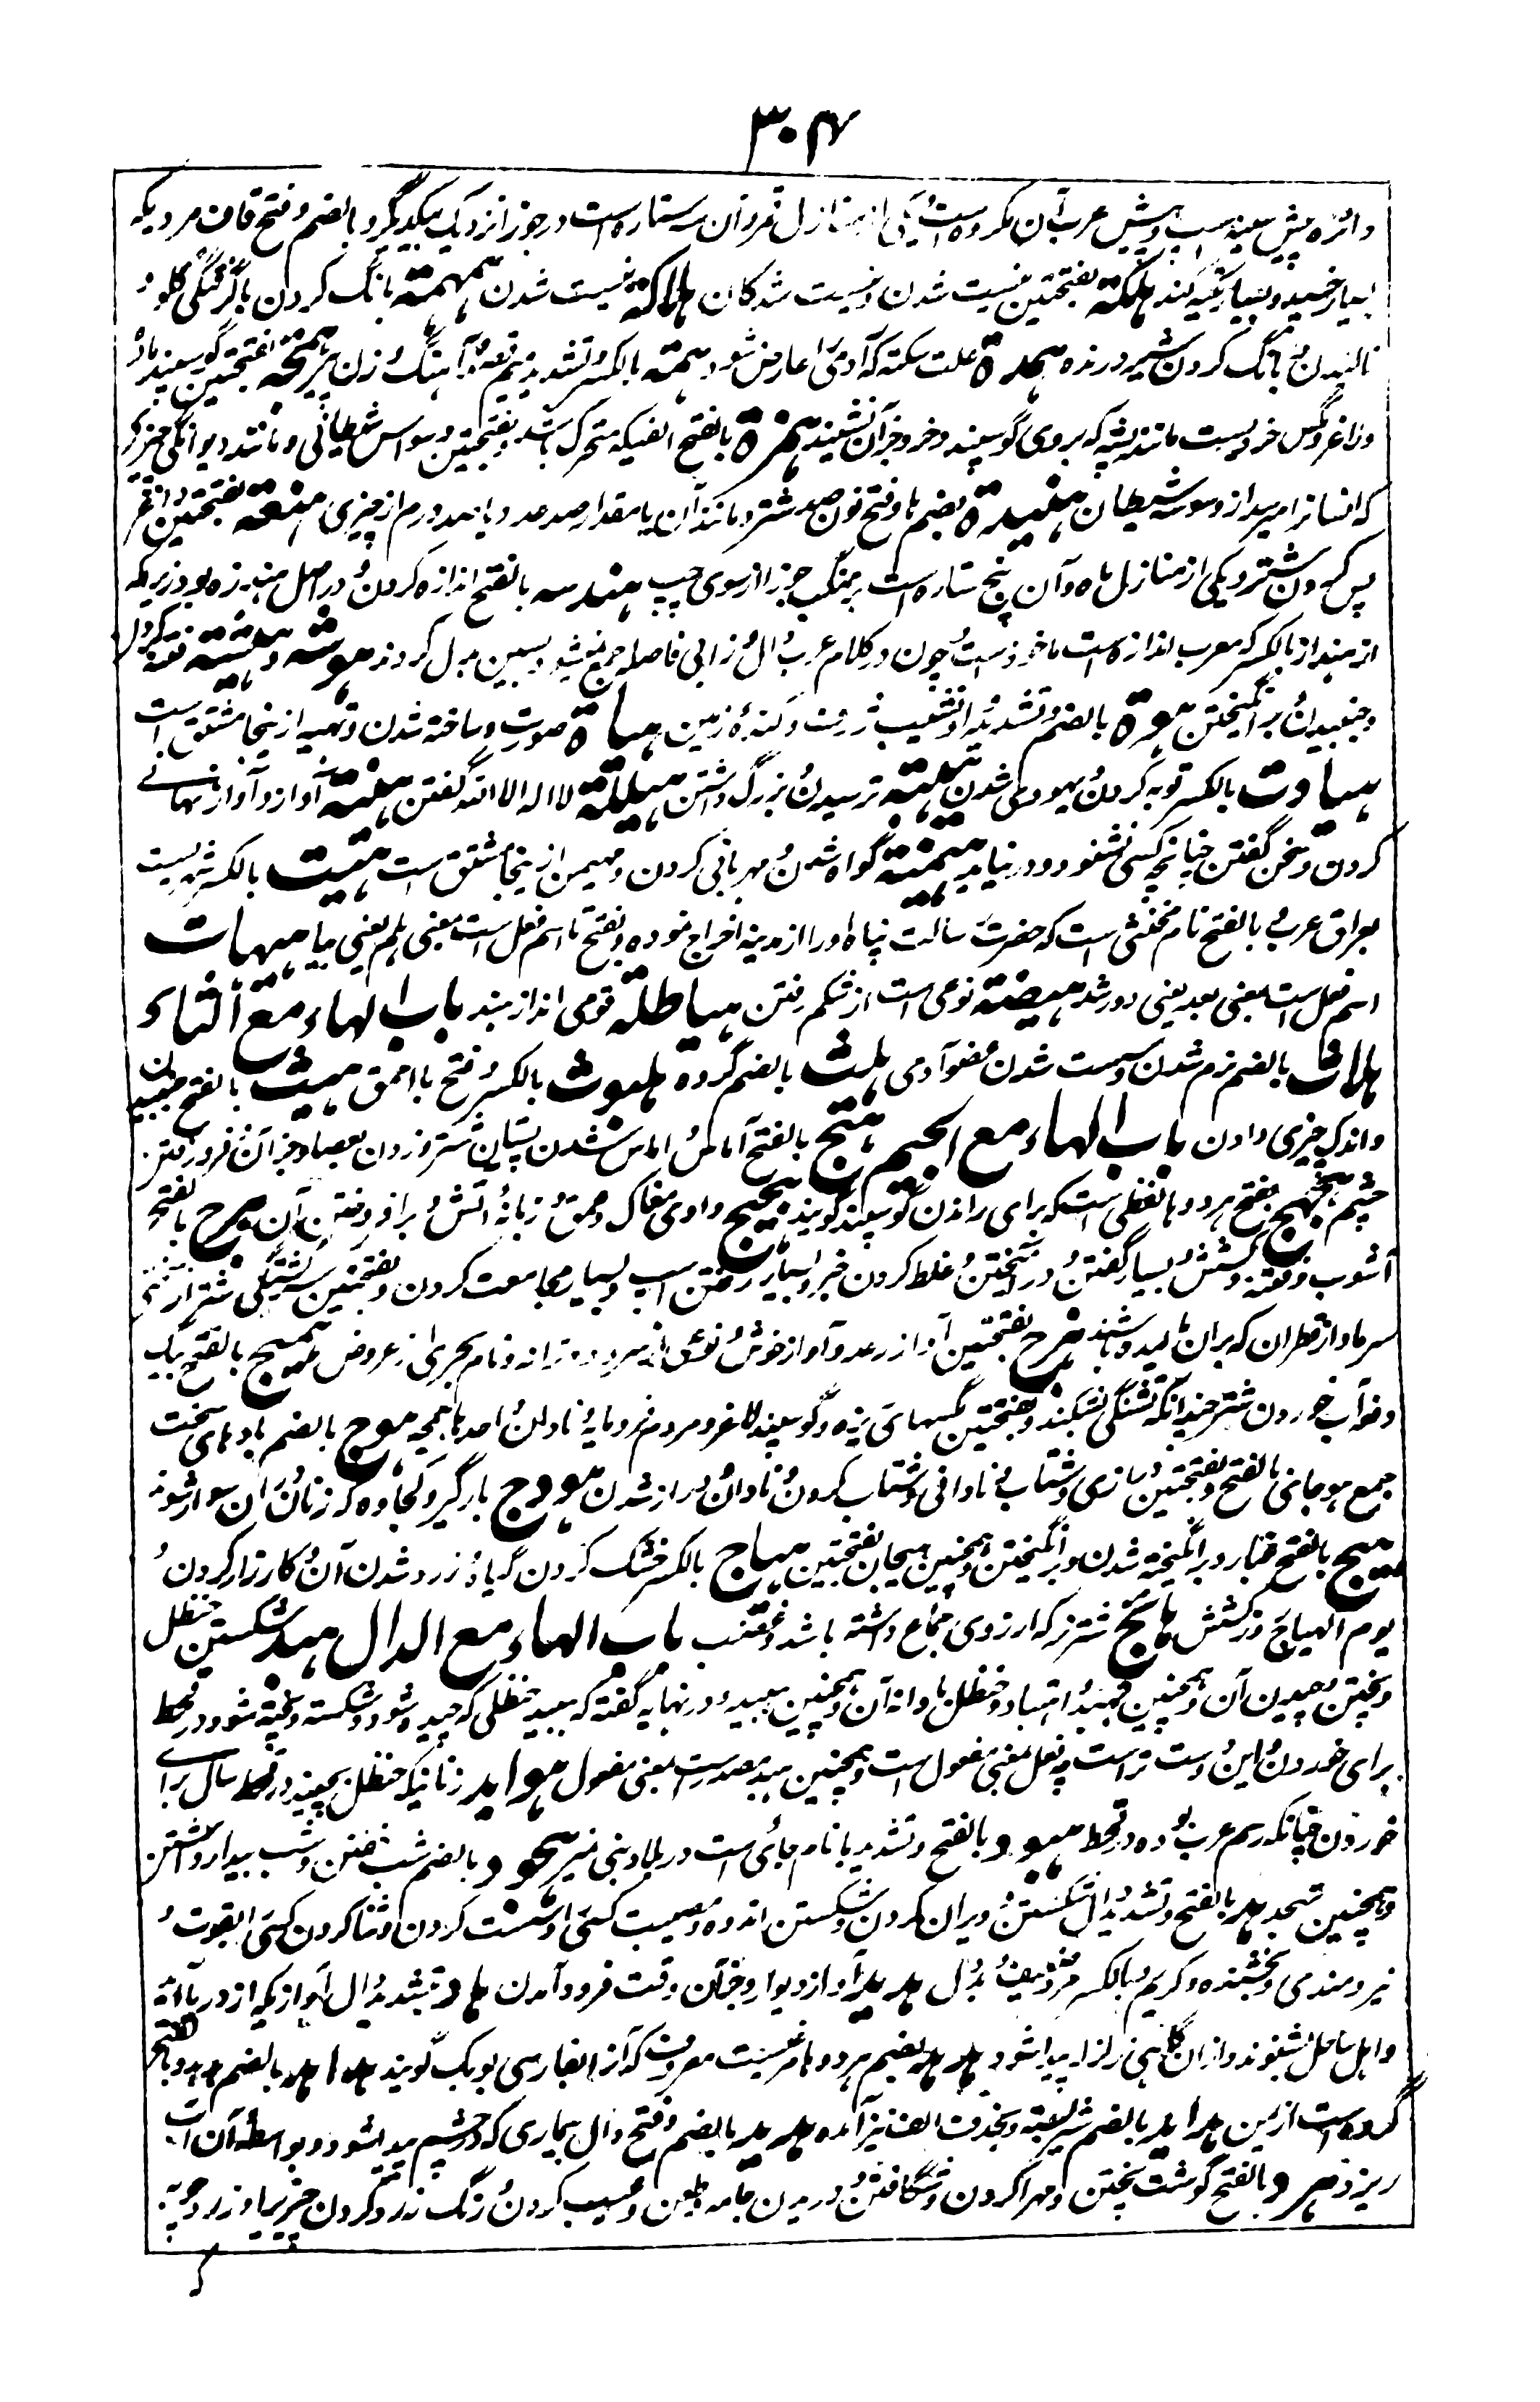 ۳۰۴
دائره پیش سینه اسپ و پیش عرب آن مکروه است و یکی از منازل قمر و آن سه ستاره است در جوزا نزدیک یکدیگر و بالضم و فتح قاف مردیکه
بسیار خسپد و بسیار تکیه کند هلکة بفتحتین نیست شدن و نیست شدگان هلاکة نیست شدن همهمة بانگ کردن با گرفتگی گلو و
نالیدن و بانگ کردن شیر درنده همدة علت سکته که آدمی را عارض شود همة بالکسر و تشدید میم قصد و آهنگ و زن پیر همجة بفتحتین گوسپند ماده
و لاغر و مگس خردیست مانند پشه که بروی گوسپند و خر و جز آن نشیند همزة بالفتح الفیکه متحرک باشد و بفتحتین وسواس شیطانی و مانند دیوانگی چیزی
که انسانرا میرسد از وسوسه شیطان هنیدة بضم ها و فتح نون صد شتر و مانند آن یا مقدار صد عدد یا صد درم از چیزی هنعة بفتحتین داغ
پس گردن شتر و یکی از منازل ماه و آن پنج ستاره است بر منکب جوزا از سوی چپ هندسه بالفتح اندازه کردن و در اصل هندزه بود زیراکه
از هنداز بالکسر که معرب اندازه است ماخوذ است و چون در کلام عرب دال و زا بی فاصله جمع نمیشود بسین بدل کردند هوشة و هیشة فتنه کردن
و جنبیدن و بر انگیختن هوة بالضم و تشدید واو نشیب ژرف و کنده زمین هیأة صورت و ساخته شدن و تهیه ازینجا مشتق است
هیاوت بالکسر توبه کردن و یهودی شدن هیبة ترسیدن و بزرگ داشتن هیللة لا اله الا الله گفتن هینمة آواز و آواز نهانی
کردن و سخن گفتن چنانچه کسی نشنود و درنیابد هیمنة گواه شدن و مهربانی کردن و مهیمن ازینجا مشتق است هیت بالکسر شهریست
بعراق عرب و بالفتح نام مخنثی است که حضرت رسالت پناه او را از مدینه اخراج نموده و بفتح تا اسم فعل است بمعنی هلم یعنی بیا هیهات
اسم فعل است بمعنی بعد یعنی دور شد هیضة نوعی است از شکم رفتن هیاطلة قومی اند از هند باب الهاء مع الثاء
هلاث بالضم نرم شدن و سست شدن عضو آدمی هلث بالضم گروه هلبوث بالکسر و فتح با احمق هیث بالفتح جنبیدن
و اندک چیزی دادن باب الهاء مع الجیم هبج بالفتح آماس و آماس شدن پستان شتر و زدن بعصا و جز آن فرو رفتن
چشم هجهج بفتح هر دو ها لفظی است که برای راندن گوسپند گویند هجیج وادی مغاک و عمق و زبانه آتش و برافروختن آن هرج بالفتح
آشوب و فتنه و کشش و بسیار گفتن و درآمیختن و غلط کردن خبر و بسیار رفتن اسپ و بسیار مجامعت کردن و بفتحتین سرگشتگی شتر از سختی
سرما و از قطران که بران مالیده باشند هزج بفتحتین آواز رعد و آواز خوش و نوعی از سرود و ترانه و نام بحری از عروض همج بالفتح بیک
دفعه آب خوردن شتر چندانکه تشنگی نشکند و بفتحتین مگسهای ریزه و گوسپند لاغر و مردم فرومایه و نادان و احد ها همجه هوج بالضم بادهای سخت
جمع هوجا نی بالفتح و بفتحتین درازی و شتاب و نادانی و شتاب کردن و نادان و دراز شدن هودج بارگیر و کجاوه که زنان دران سوار شوند
هیج بالفتح غبار و برانگیخته شدن و برانگیختن و همچنین هیجان بفتحتین هیاج بالکسر خشک کردن گیاه و زرد شدن آن و کارزار کردن و
یوم الهیاج روز کشش هایج شتر نر که آرزوی جماع داشته باشد و غضب باب الهاء مع الدال هبد شکستن حنظل
و پختن و چیدن آن و همچنین تهبید و اهتباد و حنظل یا دانه آن و همچنین هبید و در نهایه گفته که هبید حنظلی که چیده شود و شکسته و پخته شود در قحط
برای خوردن و این درست تر است چه فعیل بمعنی مفعول است و همچنین هبد مصدر است بمعنی مفعول هوابد زنانیکه حنظل بچینند در قحط سال برای
خوردن چنانکه رسم عرب بوده در قحط هبود بالفتح و تشدید با نام جائی است در بلاد بنی نمیر هجود بالضم شب خفتن و شب بیدار داشتن
و همچنین تهجد هد بالفتح و تشدید دال شکستن و ویران کردن و شکستن اندوه و مصیبت کسی را و سست کردن و ثنا کردن کسی را بقوت و
نیرومندی و بخشنده و کریم و بالکسر مرد ضعیف و بددل هدید آواز دیوار و جز آن وقت فرود آمدن هاد بتشدید دال آوازیکه از دریا آید
و اهل ساحل شنوند و ازان گاهی زلزله پیدا شود هدهد بضم هر دو ها مرغیست معروف که آنرا بفارسی بوبک گویند هداهد بالضم هدهد و بالفتح
گروه است از یمن هدابد بالضم شیر سطبر و بحذف الف نیز آمده هدبد بالضم و فتح دال بیماری که در چشم پیدا شود و بواسطه آن آب
ریزد هرد بالفتح گوشت پختن و مهرا کردن و شگافتن و دریدن جامه و طعن و عیب کردن و رنگ زرد کردن چیزیرا و زرد چوبه